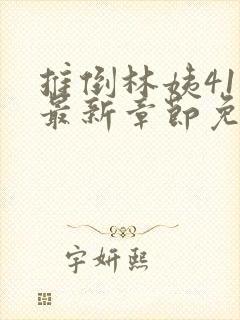 推倒林姨41
最新章节免
字妍熙